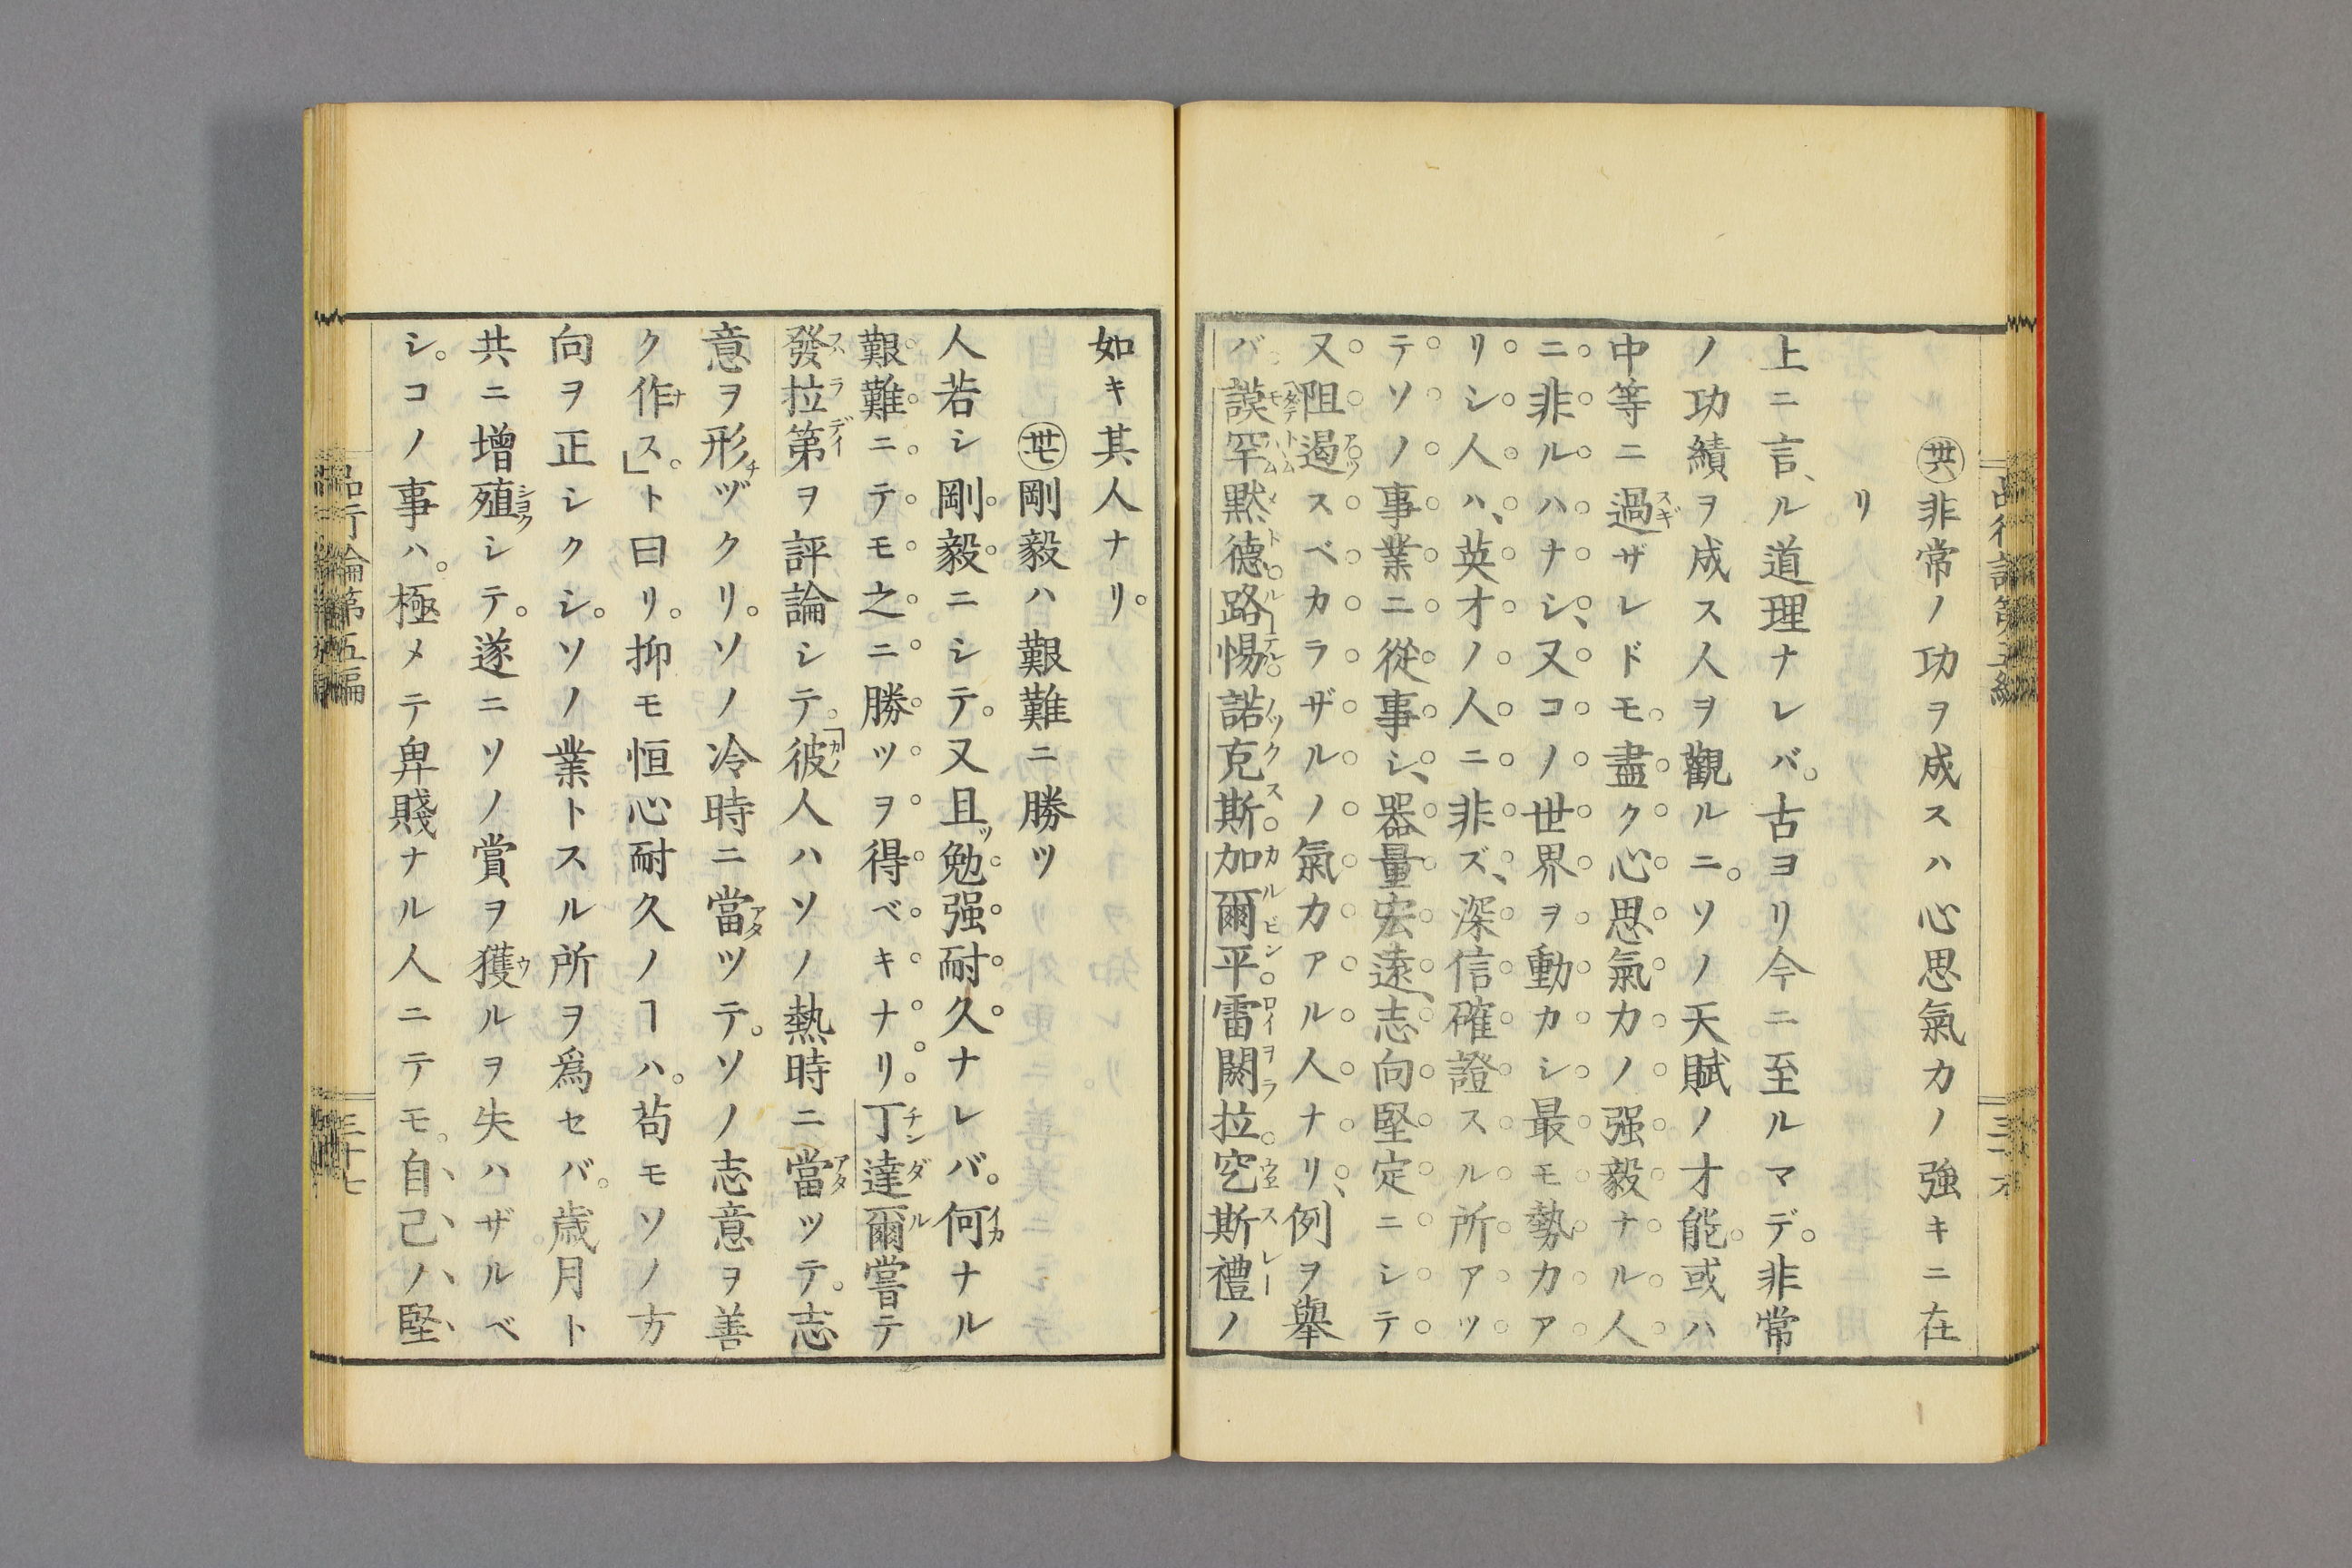 ㊱非常ノ功ヲ成スハ心思氣力ノ強キニ在
リ
上ニ言ヘル道理ナレバ。古ヨリ今ニ至ルマデ。非常
ノ功績ヲ成ス人ヲ觀ルニ。ソノ天賦ノ才能。或ハ
中等ニ過ザレドモ。盡ク心思氣力ノ强毅ナル人
ニ非ルハナシ、又コノ世界ヲ動カシ最モ勢力ア
リシ人ハ、英才ノ人ニ非ズ、深信確證スル所アツ
テソノ事業ニ從事シ、器量宏遠、志向堅定ニシテ
又阻遏スベカラザルノ氣力アル人ナリ、例ヲ擧
バ謨罕默德路惕諾克斯加爾平雷闕拉窆斯禮ノ
如キ其人ナリ。
㊲剛毅ハ艱難ニ勝ツ
人若シ剛毅ニシテ。又且ツ勉强耐久ナレバ。何ナル
艱難ニテモ之ニ勝ツヲ得ベキナリ。丁達爾嘗テ
發拉第ヲ評論シテ。「彼人ハソノ熱時ニ當ツテ。志
意ヲ形ヅクリ。ソノ冷時ニ當ツテ。ソノ志意ヲ善
ク作ス。」ト曰リ。抑モ恒心耐久ノヿハ。苟モソノ方
向ヲ正シクシ。ソノ業トスル所ヲ爲セバ。歳月ト
共ニ增殖シテ。遂ニソノ賞ヲ獲ルヲ失ハザルベ
シ。コノ事ハ。極メテ卑賤ナル人ニテモ。自己ノ堅
品行論第五編
三十七